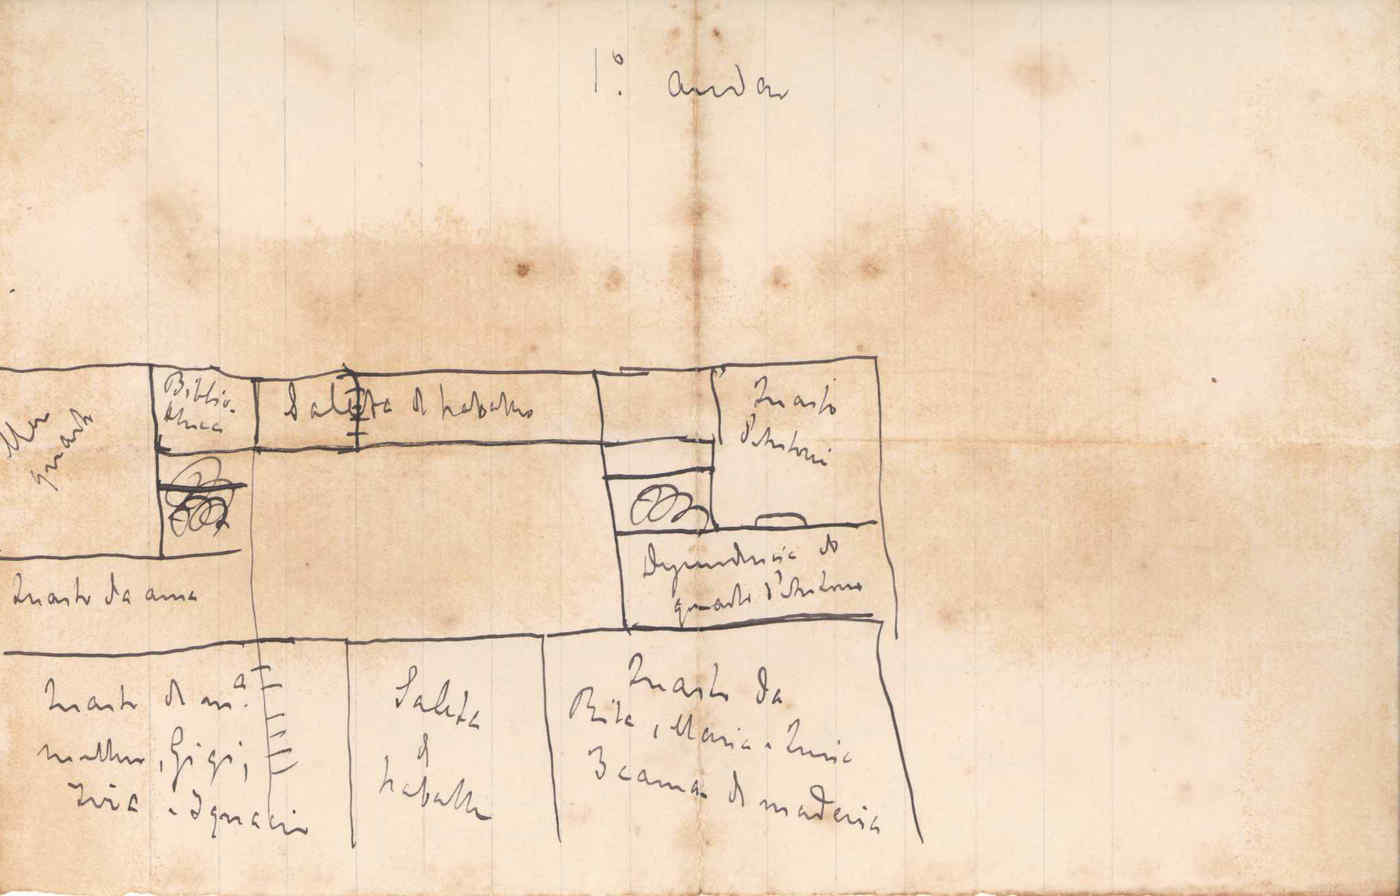 1º andar
Meu
quarto
Biblio-
theca
Saleta de trabalho
Quarto
Quarto da ama
Dependencia do
quarto d'Antonio
Quarto de m.ª
mulher, Gigi,
e Ignacio
Saleta
de
trabalho
Quarto da
Rita, Maria e
3 camas de madeira